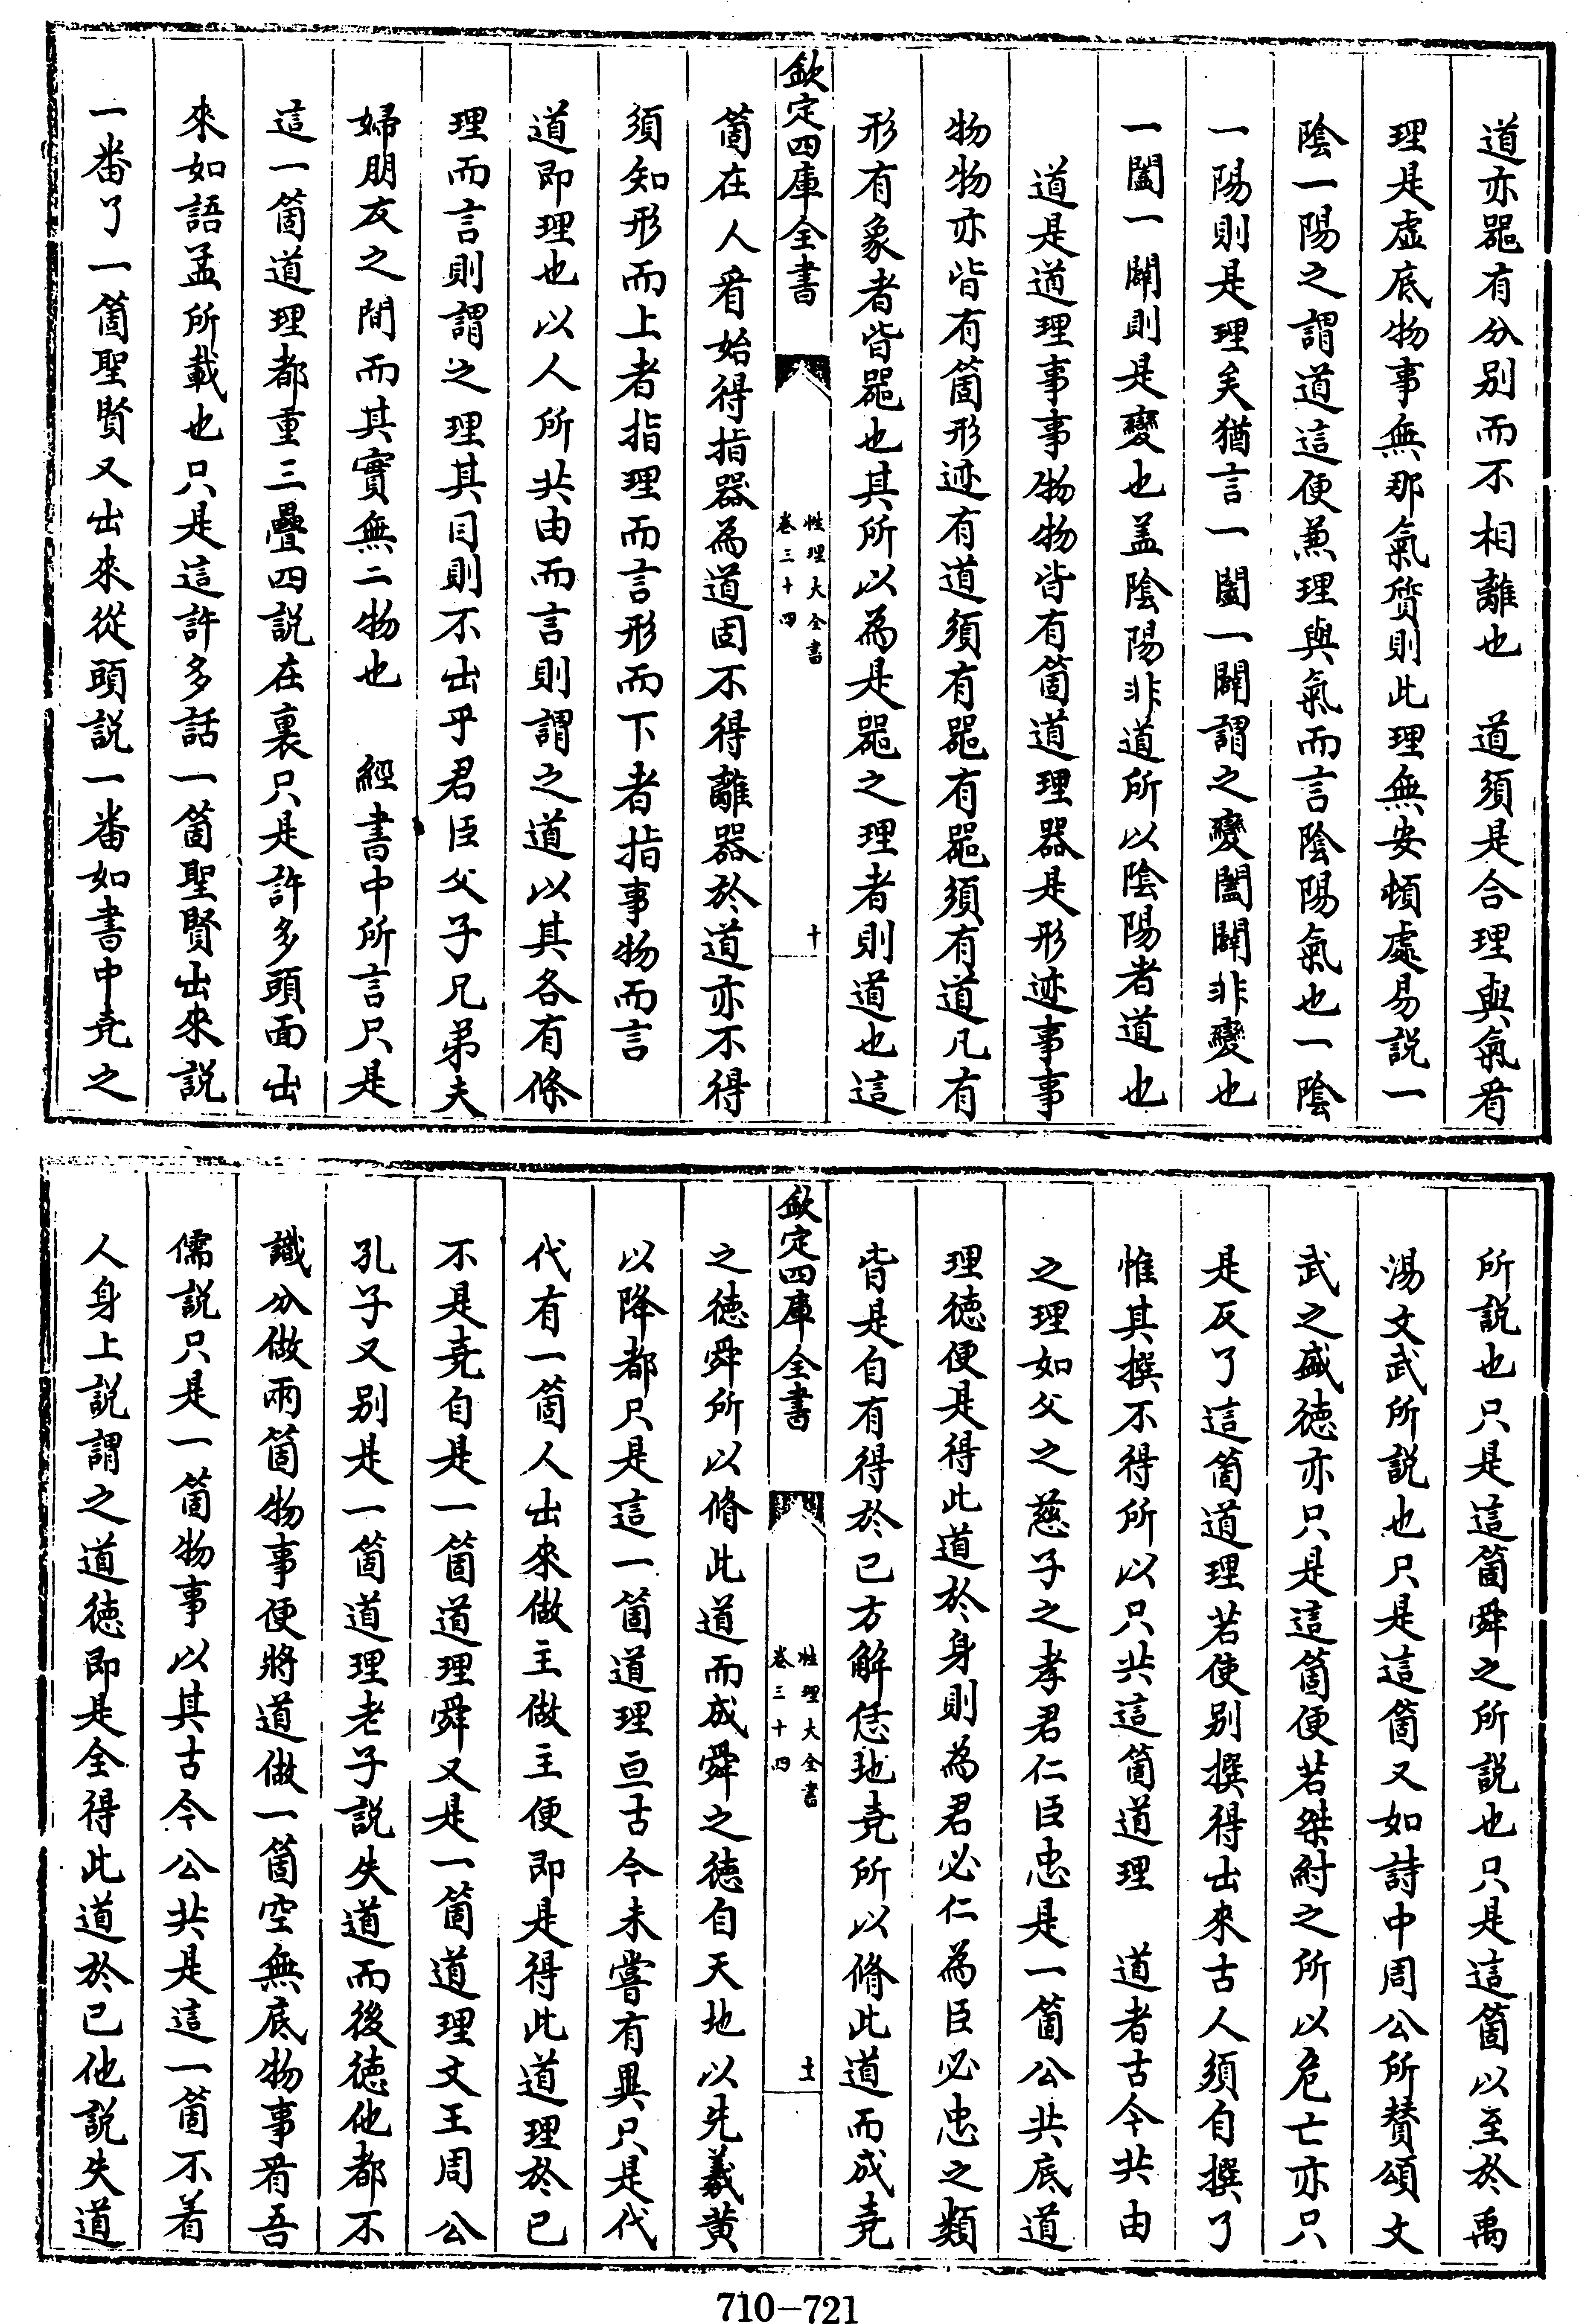 道亦噐有分别而不相離也　道須是合理與氣看
理是虚底物事無那氣質則此理無安頓處易説一
陰一陽之謂道這便兼理與氣而言陰陽氣也一陰
一陽則是理矣猶言一闔一闢謂之變闔闢非變也
一闔一闢則是變也盖陰陽非道所以陰陽者道也
道是道理事事物物皆有箇道理器是形迹事事
物物亦皆有箇形迹有道須有噐有噐須有道凡有
形有象者皆噐也其所以為是噐之理者則道也這
欽定四庫全書
性理大全書
卷三十四
十
箇在人看始得指器為道固不得離器於道亦不得
須知形而上者指理而言形而下者指事物而言
道即理也以人所共由而言則謂之道以其各有條
理而言則謂之理其目則不出乎君臣父子兄弟夫
婦朋友之間而其實無二物也　經書中所言只是
這一箇道理都重三疊四説在裏只是許多頭面出
來如語孟所載也只是這許多話一箇聖賢出來説
一番了一箇聖賢又出來從頭説一番如書中堯之
所説也只是這箇舜之所説也只是這箇以至於禹
湯文武所説也只是這箇又如詩中周公所賛頌文
武之盛徳亦只是這箇便若桀紂之所以危亡亦只
是反了這箇道理若使别撰得出來古人須自撰了
惟其撰不得所以只共這箇道理　道者古今共由
之理如父之慈子之孝君仁臣忠是一箇公共底道
理徳便是得此道於身則為君必仁為臣必忠之類
皆是自有得於己方解恁地堯所以脩此道而成堯
欽定四庫全書
性理大全書
卷三十四
十一
之徳舜所以脩此道而成舜之徳自天地以先羲黄
以降都只是這一箇道理亘古今未嘗有異只是代
代有一箇人出來做主做主便即是得此道理於己
不是堯自是一箇道理舜又是一箇道理文王周公
孔子又别是一箇道理老子説失道而後徳他都不
識分做兩箇物事便將道做一箇空無底物事看吾
儒説只是一箇物事以其古今公共是這一箇不着
人身上説謂之道徳即是全得此道於己他説失道
710-721